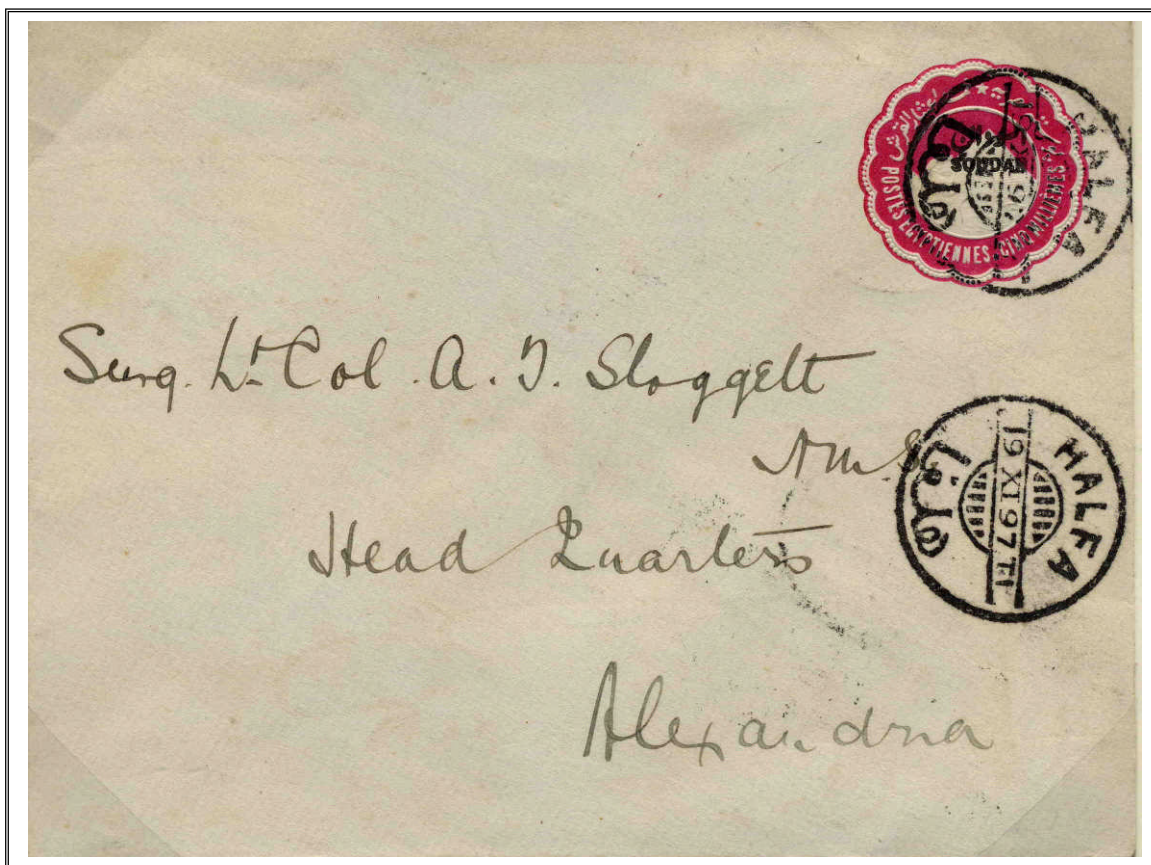 SOUDAN
POSTES EGYPTIENNES. CINQ MILLIÈMES
HALFA
حلفا
Surg. Lt Col. A. T. Sloggett
A.M.S.
Head Quarters
Alexandria
HALFA
19 XI 97 T1
حلفا